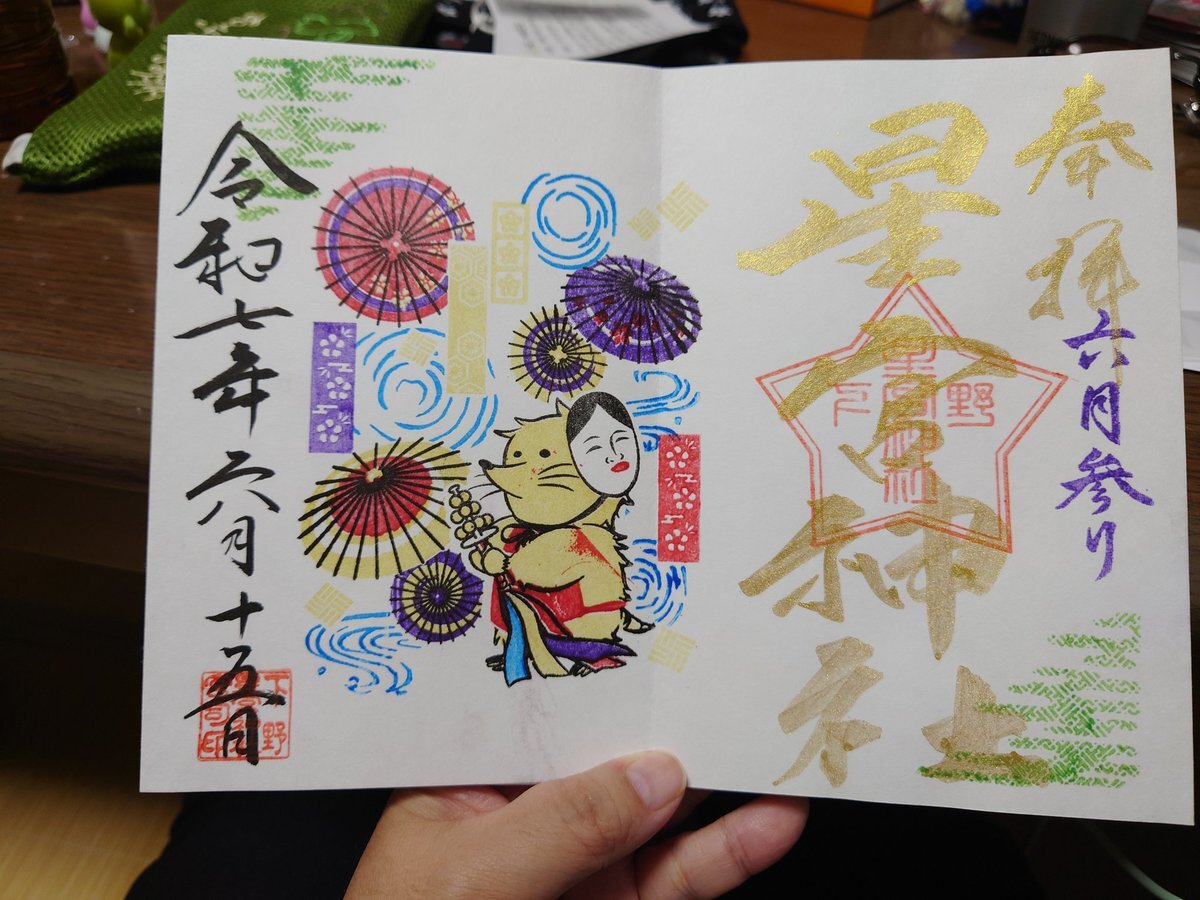 奉拝
六月参り
星宮神社
下野
星宮神社
令和七年六月十五日